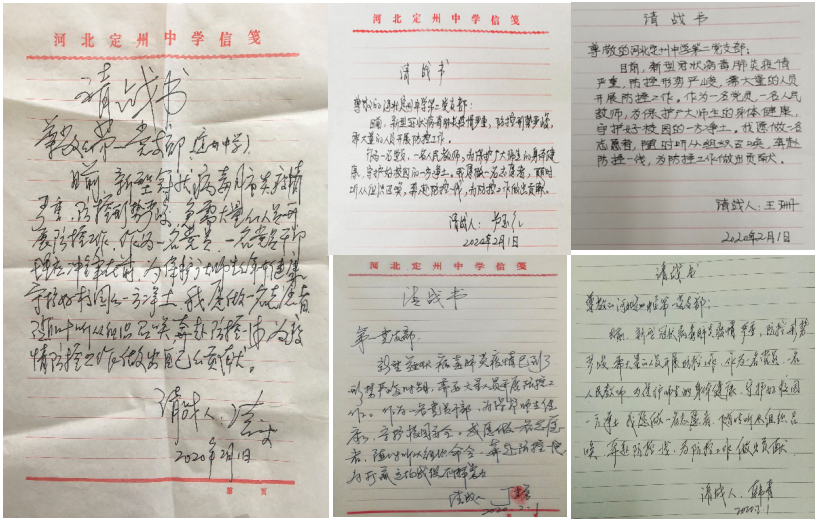 河北定州中学信笺
请战书
尊敬的第一党支部（定州中学）
目前，新型冠状病毒肺炎疫情
严重，防控形势严峻，急需大量的人员开
展防控工作。作为一名党员，一名党员干部
理应冲锋在前，为保护广大师生的身体健康
守护好校园的一方净土，我愿做一名志愿者
随时听从组织召唤奔赴防控一线，为疫
情防控工作做出自己的贡献。
请战人：
2020年2月1日
第 页
河北定州中学信笺
请战书
尊敬的河北定州中学第二党支部：
目前，新型冠状病毒肺炎疫情严重，防控形势严峻，
需大量的人员开展防控工作。
作为一名党员，一名人民教师，为保护广大师生的身体健
康，守护好校园的一方净土。我愿做一名志愿者，随时
听从组织召唤，奔赴防控一线，为防控工作做出贡献。
请战人：
2020年2月1日
请战书
尊敬的河北定州中学第二党支部：
目前，新型冠状病毒肺炎疫情
严重，防控形势严峻，需大量的人员
开展防控工作。作为一名党员，一名人民
教师，为保护广大师生的身体健康，
守护好校园的一方净土。我愿做一名
志愿者，随时听从组织召唤，奔赴
防控一线，为防控工作做出贡献。
请战人：王珊
2020年2月1日
河北定州中学信笺
请战书
第一党支部：
新型冠状病毒肺炎疫情已到了
形势严峻时刻，需要大量人员开展防控工
作。作为一名党员干部，为保护师生健
康，守护校园安全。我愿做一名志愿
者，随时听从组织命令，奔赴防控一线
为打赢这场战役
请战人
2020.2.1
请战书
尊敬的河北定州中学第一党支部：
目前，新型冠状病毒肺炎疫情严重，防控形势
严峻，需大量的人员开展防控工作，作为一名党员，一名
人民教师，为保护师生的身体健康，守护好校园
一方净土，我愿做一名志愿者，随时听从组织召
唤，奔赴防控一线，为防控工作做出贡献
请战人：
2020.2.1